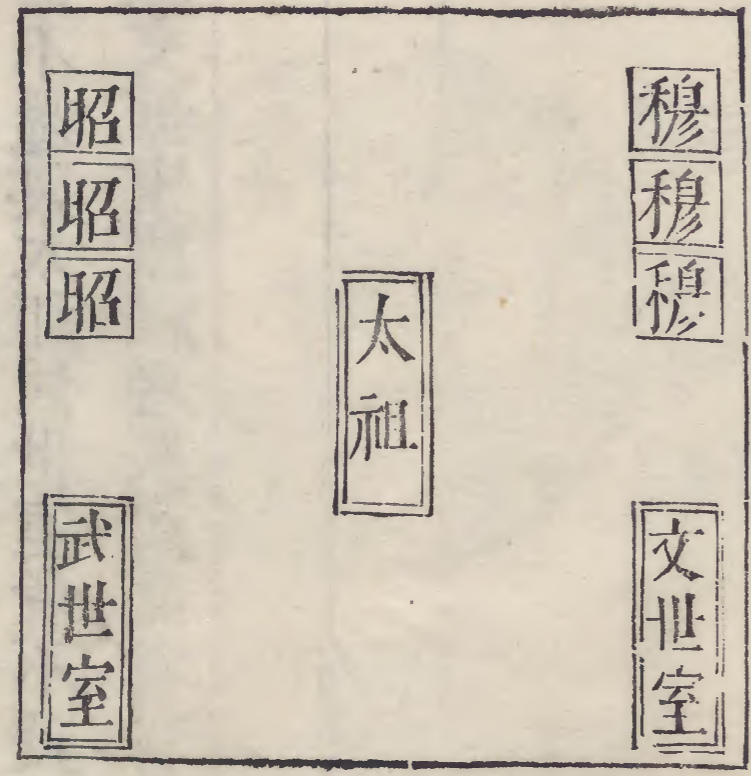 穆
穆
穆
文世室
太祖
昭
昭
昭
武世室